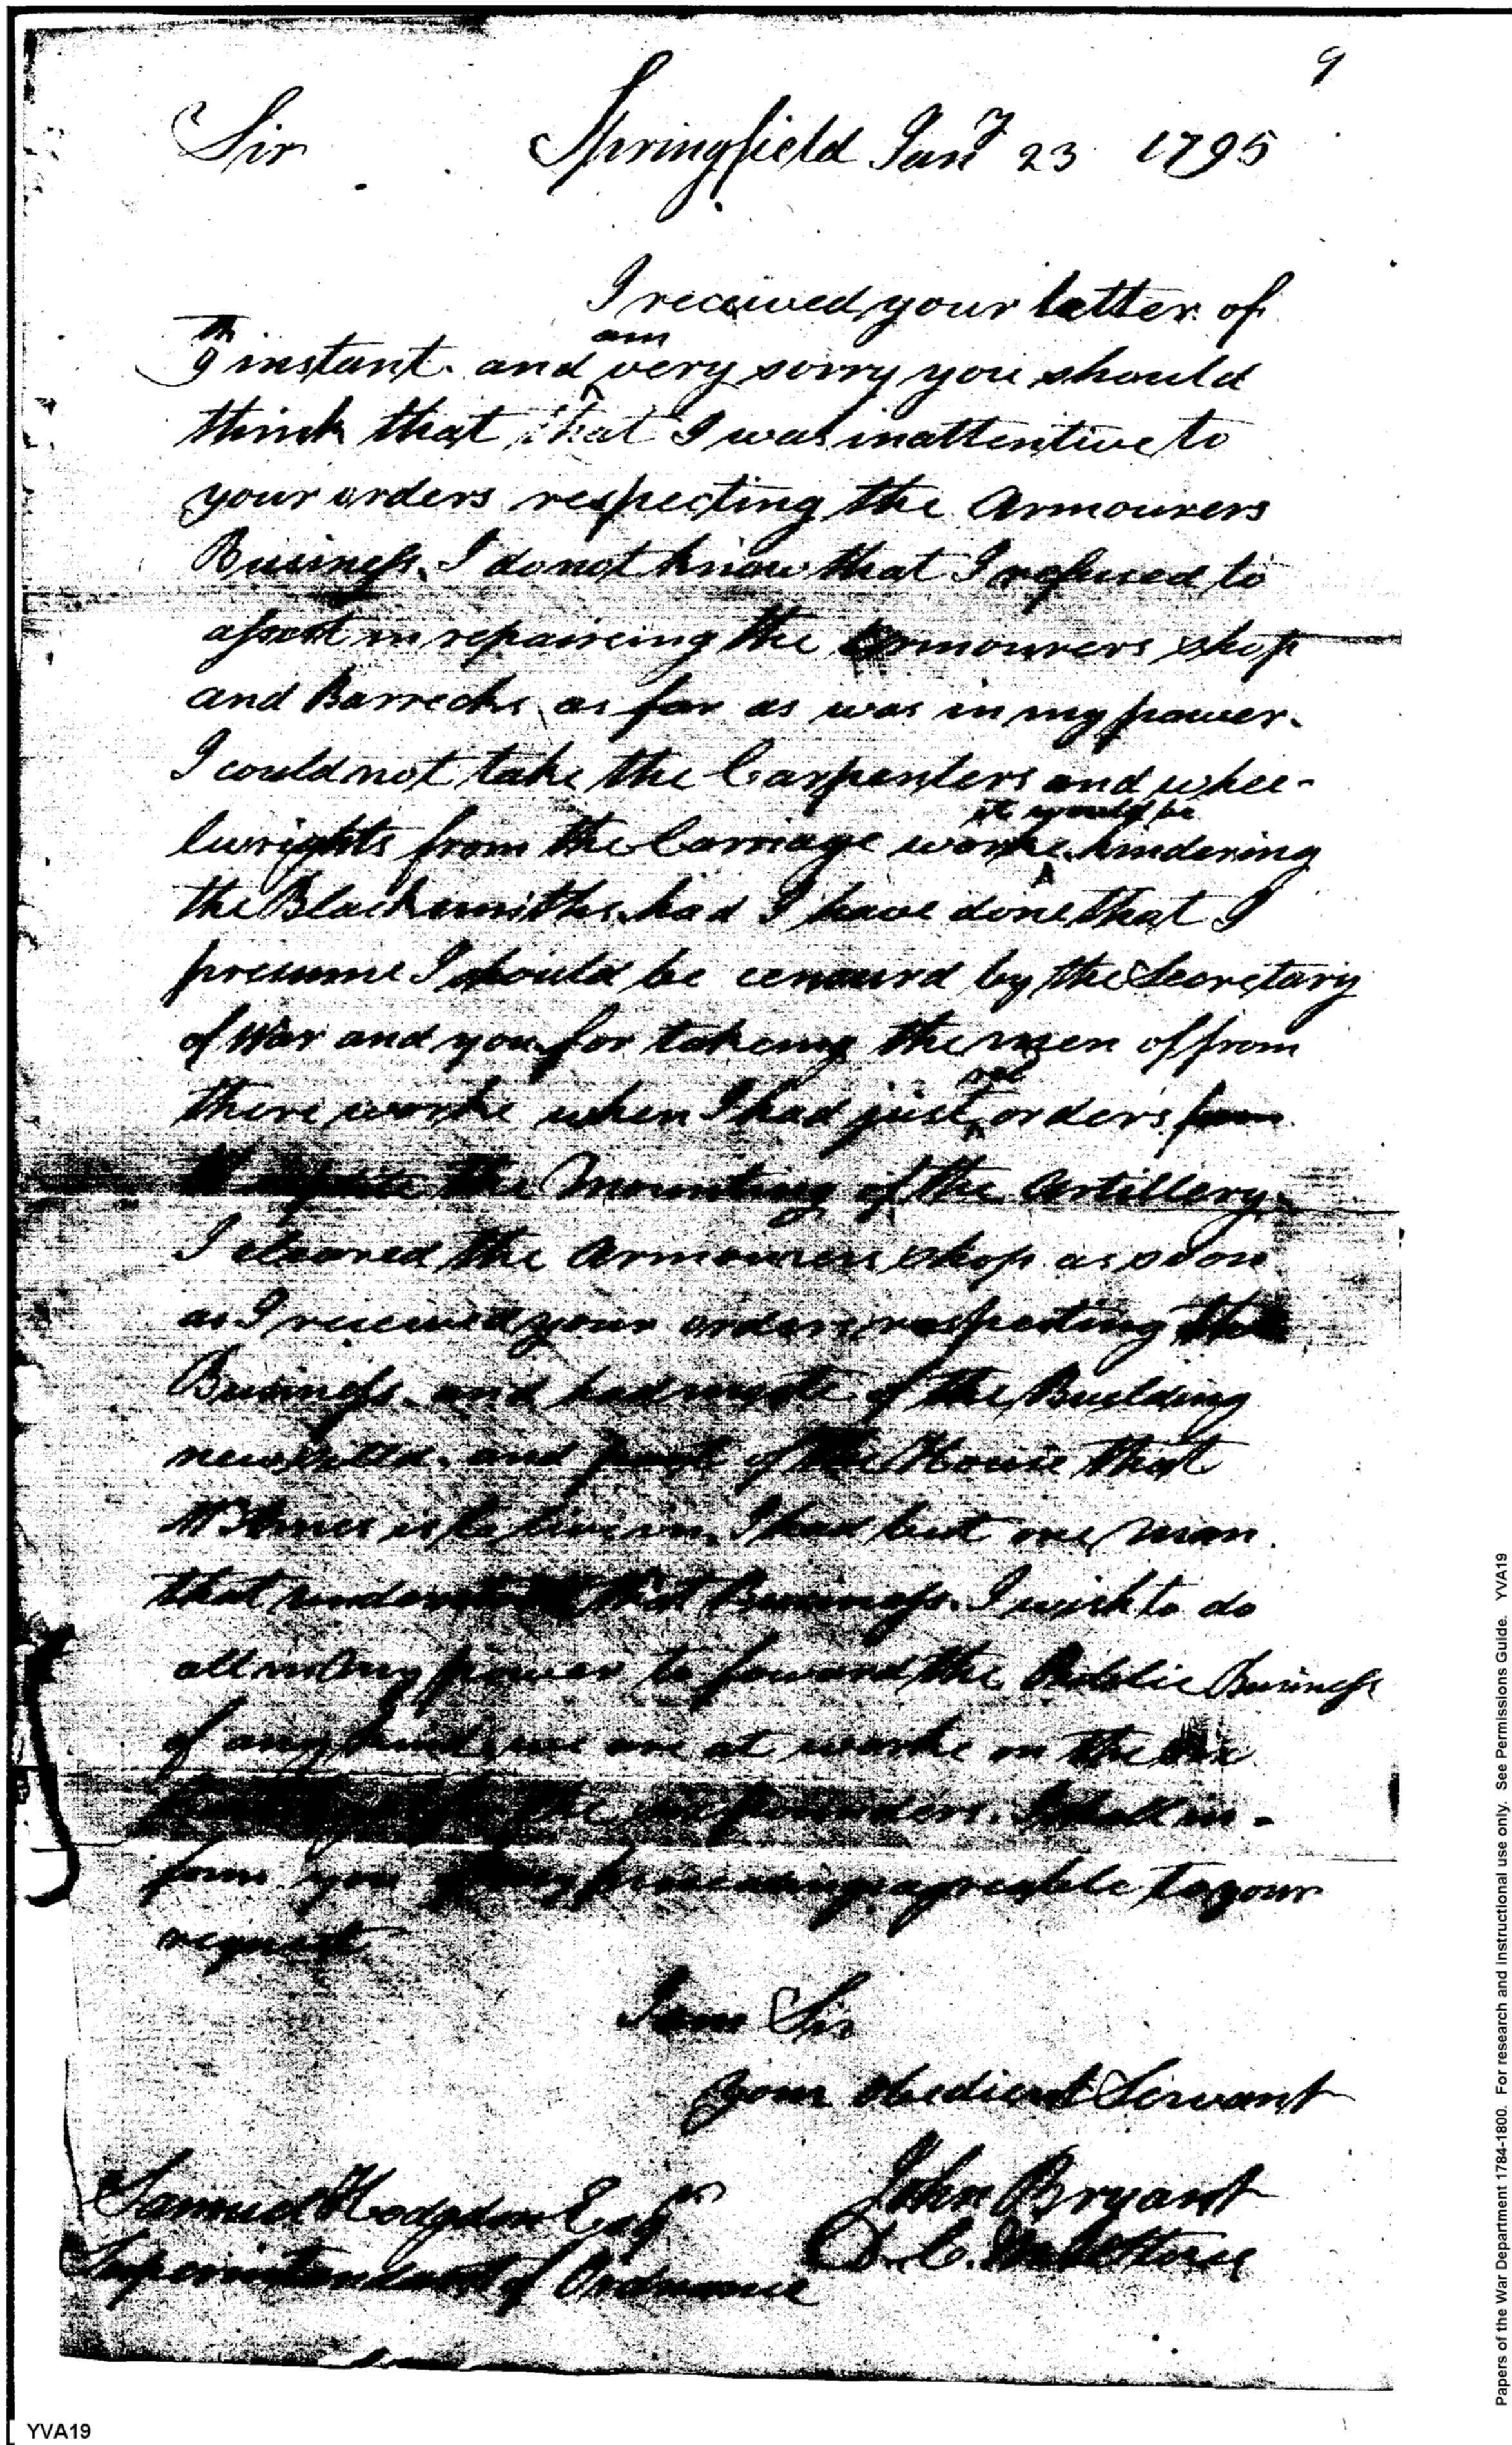 9
Sir Springfield Jany 23 1795
I received your letter of
9th instant. and am very sorry you should
think that that I was inattentive to
your orders respecting the Armourers
Business. I do not know that I refused to
assist in repaireing the Armourers shop
and Barrecks as far as was in my power.
I could not take the Carpenters and whee-
lwrights from the Carriage worke it would be hindering
the Blacksmiths. had I have done that I
presume I should be censurd by the Secretary
of War and you for takeing the men of from
there worke when I had just orders
the Mounting of the Artillery.
I cleared the Armourers shop as soon
as I received your orders respecting the
Business. and had most of the Building
new and part of the House that
is to live in, I had but one man
that that Business. I wish to do
all in my power to foward the Publie Business
of any kind, we are at worke on the
the six pounders. I shall in-
form you of my proceedings agreeable to your
request
I am Sir
your obedient Servant
John Bryant
D. C. M Stores
Samuel Hodgdon Esqr
Superintendant of Ordnance
YVA19
Papers of the War Department 1784-1800. For research and instructional use only. See Permissions Guide. YVA19